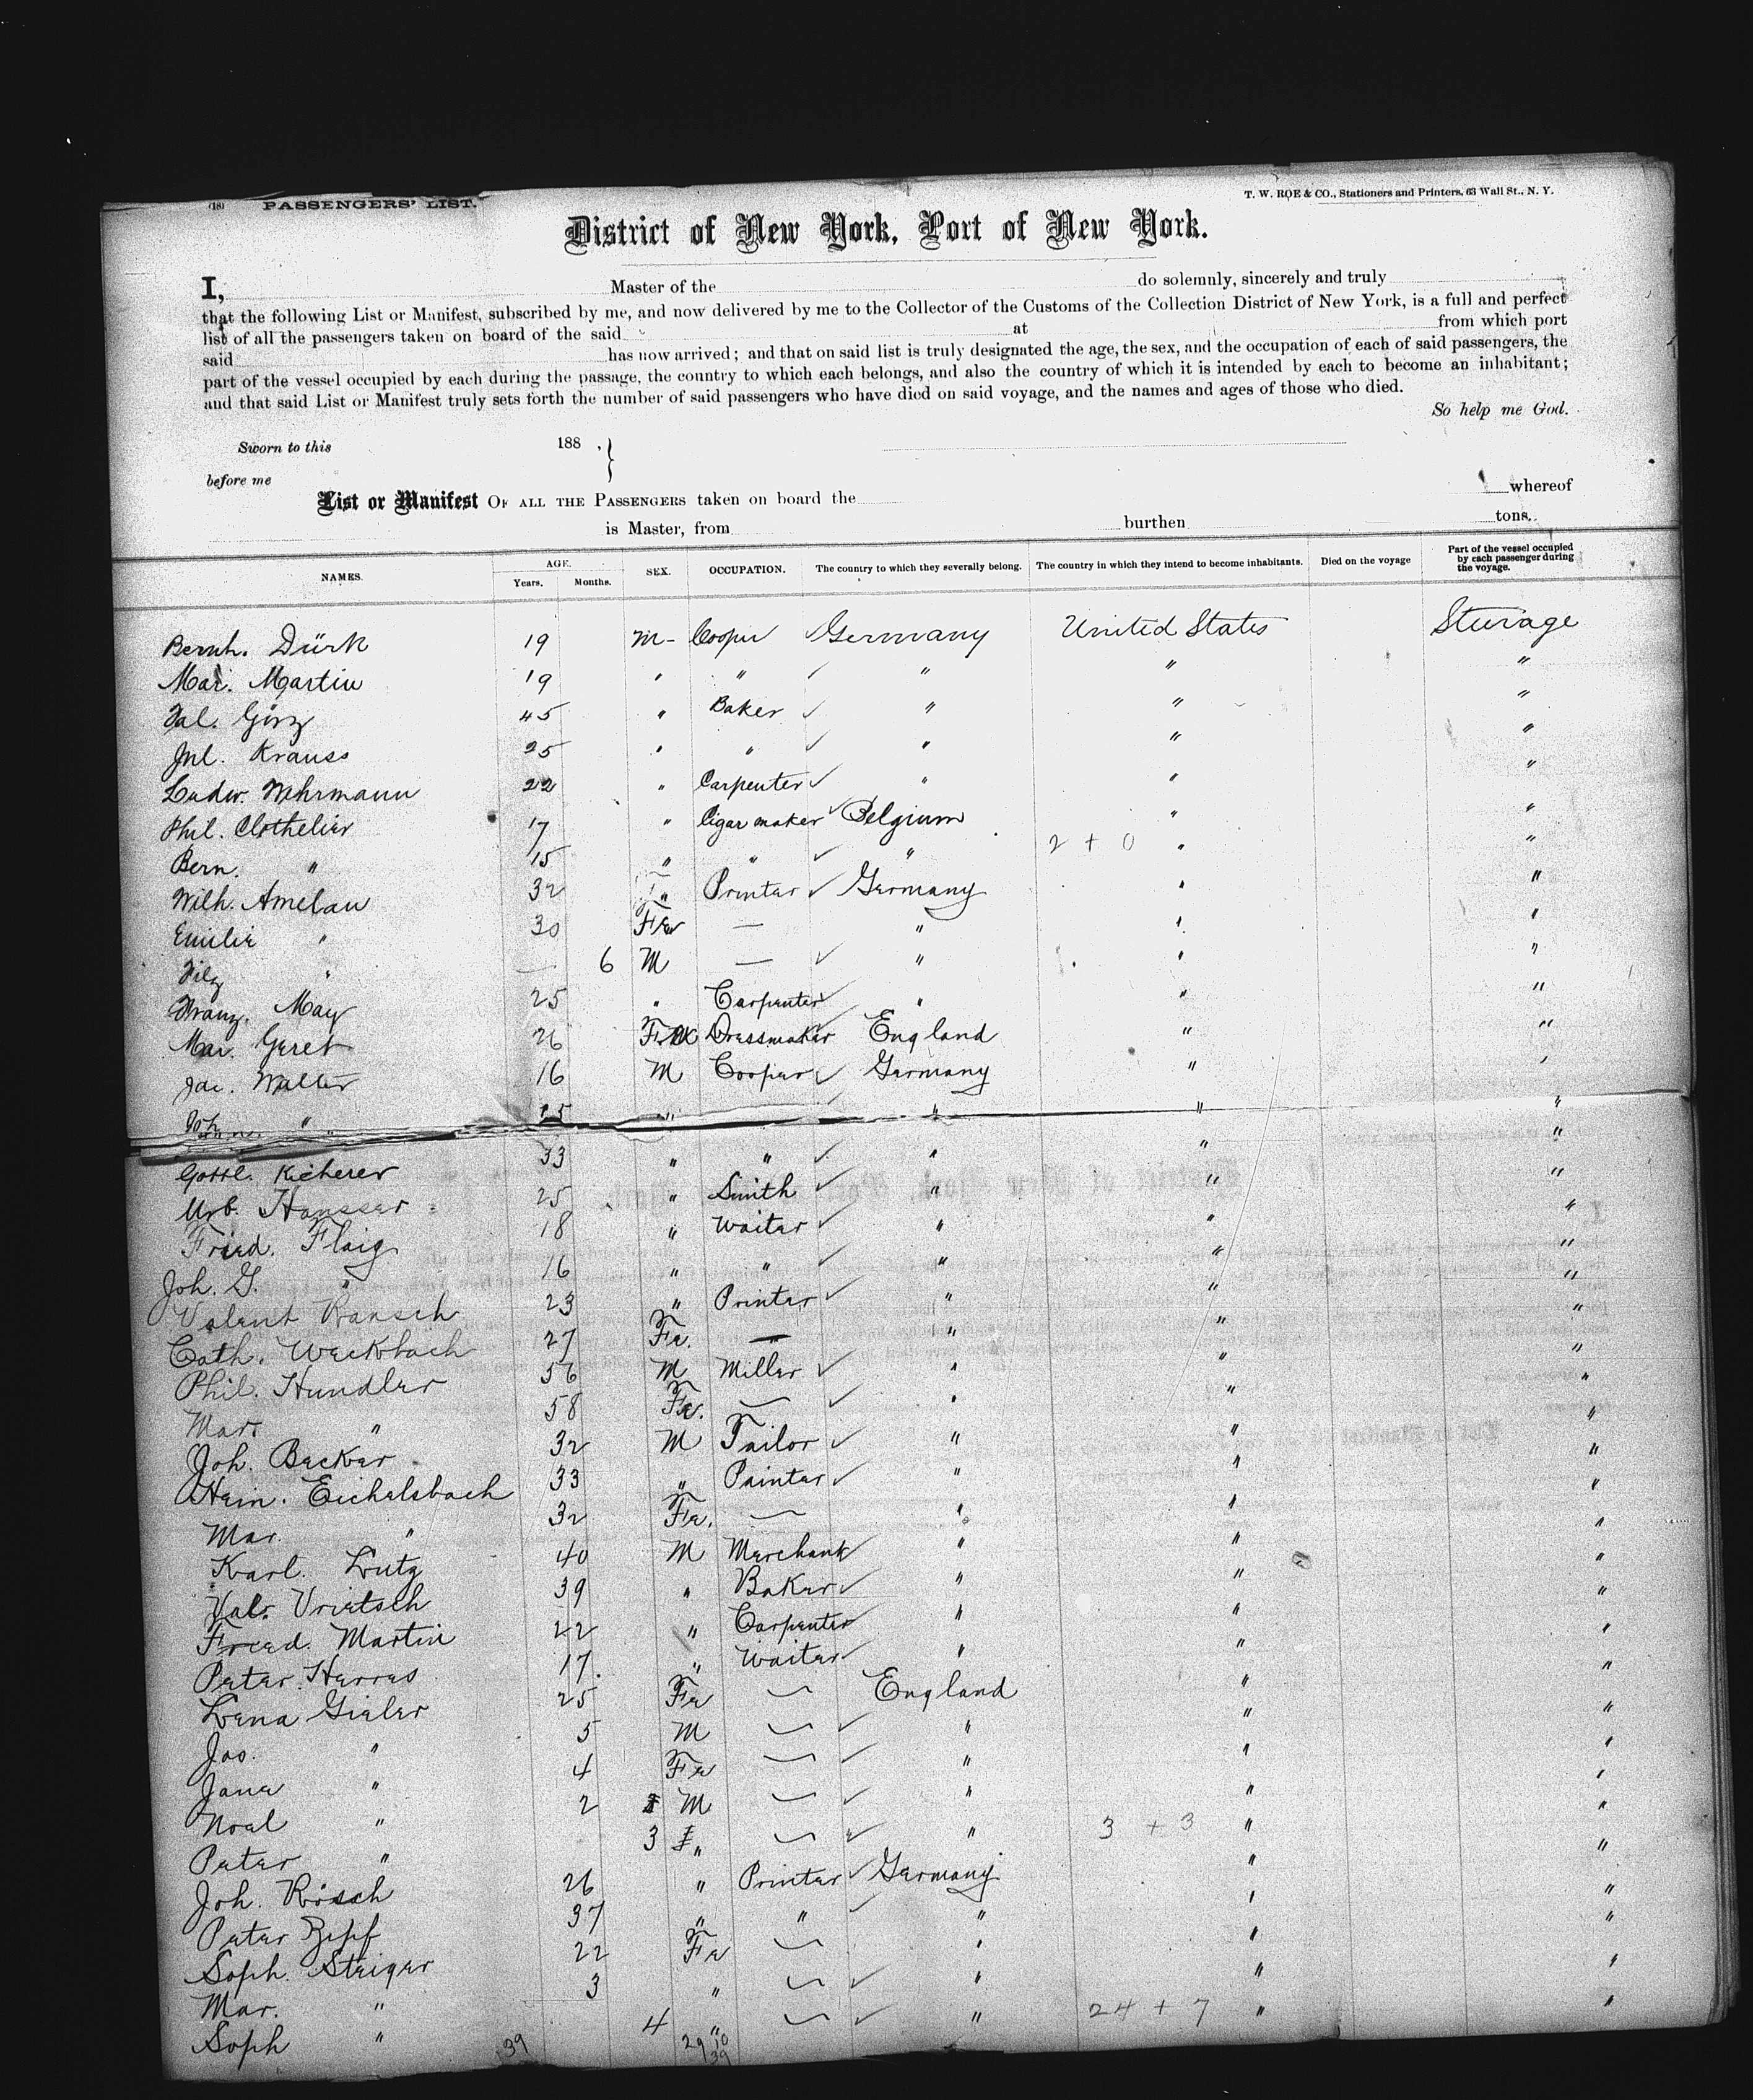 (18) PASSENGERS' LIST.
T. W. ROE & CO., Stationers and Printers, 63 Wall St., N. Y.
District of New York, Port of New York.
I, Master of the do solemnly, sincerely and truly
that the following List or Manifest, subscribed by me, and now delivered by me to the Collector of the Customs of the Collection District of New York, is a full and perfect
list of all the passengers taken on board of the said at from which port
said has now arrived; and that on said list is truly designated the age, the sex, and the occupation of each of said passengers, the
part of the vessel occupied by each during the passage, the country to which each belongs, and also the country of which it is intended by each to become an inhabitant;
and that said List or Manifest truly sets forth the number of said passengers who have died on said voyage, and the names and ages of those who died.
So help me God.
Sworn to this 188 .
before me
List or Manifest OF ALL THE PASSENGERS taken on board the whereof
is Master, from burthen tons.
NAMES. AGE. Years. Months. SEX. OCCUPATION. The country to which they severally belong. The country in which they intend to become inhabitants. Died on the voyage Part of the vessel occupied by each passenger during the voyage.
Bernh. Dürk 19 M Cooper Germany United States Steerage
Mar. Martin 19 " " " " "
Val. Görz 45 " Baker " " "
Jul. Krauss 25 " " " " "
Ludw. Wehrmann 22 " Carpenter " " "
Phil. Clothelier 17 " Cigar maker Belgium " "
Bern. " 15 " " " 2 + 0 " "
Wilh. Amelau 32 " Printer Germany " "
Emilie " 30 Fe — " " "
" — 6 M — " " "
Franz. May 25 " Carpenter " " "
Mar. Geret 26 Fe Dressmaker England " "
Jac. Walter 16 M Cooper Germany " "
Joh. " 15 " " " "
Gottl. Kicherer 33 " " " " "
Urb. Hausser 25 " Smith " " "
Fried. Flaig 18 " Waiter " " "
Joh. G. " 16 " " " " "
Valent Rausch 23 " Printer " " "
Cath. Weckbach 27 Fe. — " " "
Phil. Hundler 56 M Miller " " "
Mar. " 58 Fe. — " " "
Joh. Becker 32 M Tailor " " "
Hein. Eichelsbach 33 " Painter " " "
Mar. " 32 Fe. — " " "
Karl. Lutz 40 M Merchant " " "
Val. Vrietsch 39 " Baker " " "
Fried. Martin 22 " Carpenter " " "
Peter Herres 17. " Waiter " " "
Lena Gieler 25 Fe — England " "
Jos. " 5 M — " " "
Jane " 4 Fe — " " "
Noel " 2 M — " " "
Peter " 3 " — " 3 + 3 " "
Joh. Rösch 26 " Printer Germany " "
Peter Zepf 37 " " " " "
Soph. Steiger 22 Fe — " " "
Mar. " 3 " — " " "
Soph " 4 " — " 24 + 7 " "
39 29 10
39